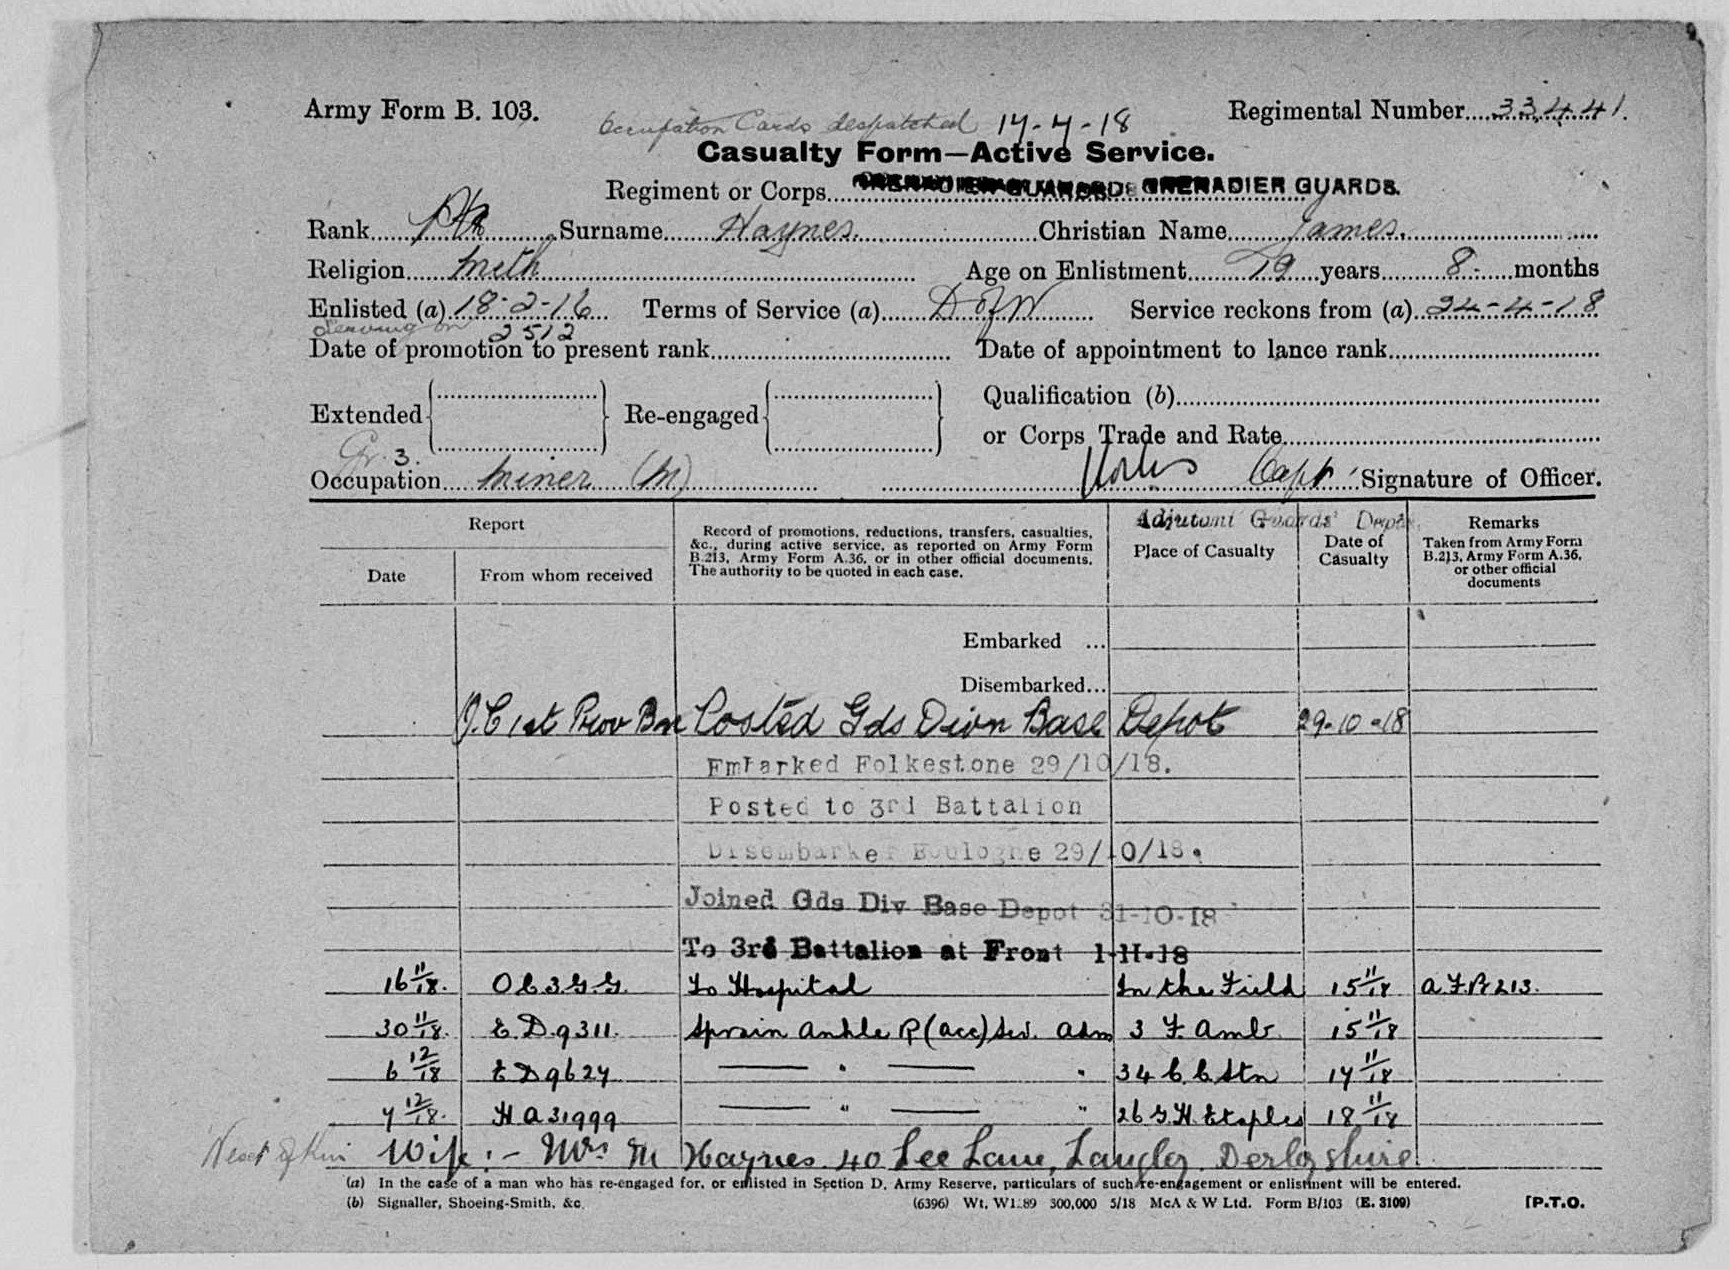 Army Form B. 103.
Occupation Cards despatched 17-7-18
Regimental Number 33441.
Casualty Form—Active Service.
Regiment or Corps GRENADIER GUARDS.
Rank Pte Surname Haynes. Christian Name James.
Religion Meth Age on Enlistment 19 years 8 months
Enlisted (a) 18-2-16 Terms of Service (a) D of W Service reckons from (a) 24-4-18
2512
Date of promotion to present rank Date of appointment to lance rank
Extended Re-engaged Qualification (b)
or Corps Trade and Rate
Gr. 3.
Occupation Miner (M) Capt Signature of Officer.
Adjutant Guards' Depot
Report
Date From whom received
Record of promotions, reductions, transfers, casualties,
&c., during active service, as reported on Army Form
B.213, Army Form A.36, or in other official documents.
The authority to be quoted in each case.
Place of Casualty
Date of
Casualty
Remarks
Taken from Army Form
B.213, Army Form A.36,
or other official
documents
Embarked ...
Disembarked...
O.C 1st Prov Bn Posted Gds Divn Base Depot 29-10-18
Embarked Folkestone 29/10/18.
Posted to 3rd Battalion
Disembarked Boulogne 29/10/18.
Joined Gds Div Base Depot 31-10-18
To 3rd Battalion at Front 1-11-18
16 11/18. O C 3 G.G. To Hospital In the Field 15 11/18 A.F.B 213.
30 11/18. E.D. 9311. Sprain Ankle R (acc) Sev. adm 3 F. Amb. 15 11/18
6 12/18 E D 9627 — " — " 34 C C Stn 17 11/18
7 12/18. H A 31999 — " — " 26 G.H. Etaples 18 11/18
Next of Kin Wife:- Mrs M Haynes 40 Lee Lane, Langley Derbyshire
(a) In the case of a man who has re-engaged for, or enlisted in Section D, Army Reserve, particulars of such re-engagement or enlistment will be entered.
(b) Signaller, Shoeing-Smith, &c. (6396) Wt. W1289 300,000 5/18 McA & W Ltd. Form B/103 (E. 3109) [P.T.O.